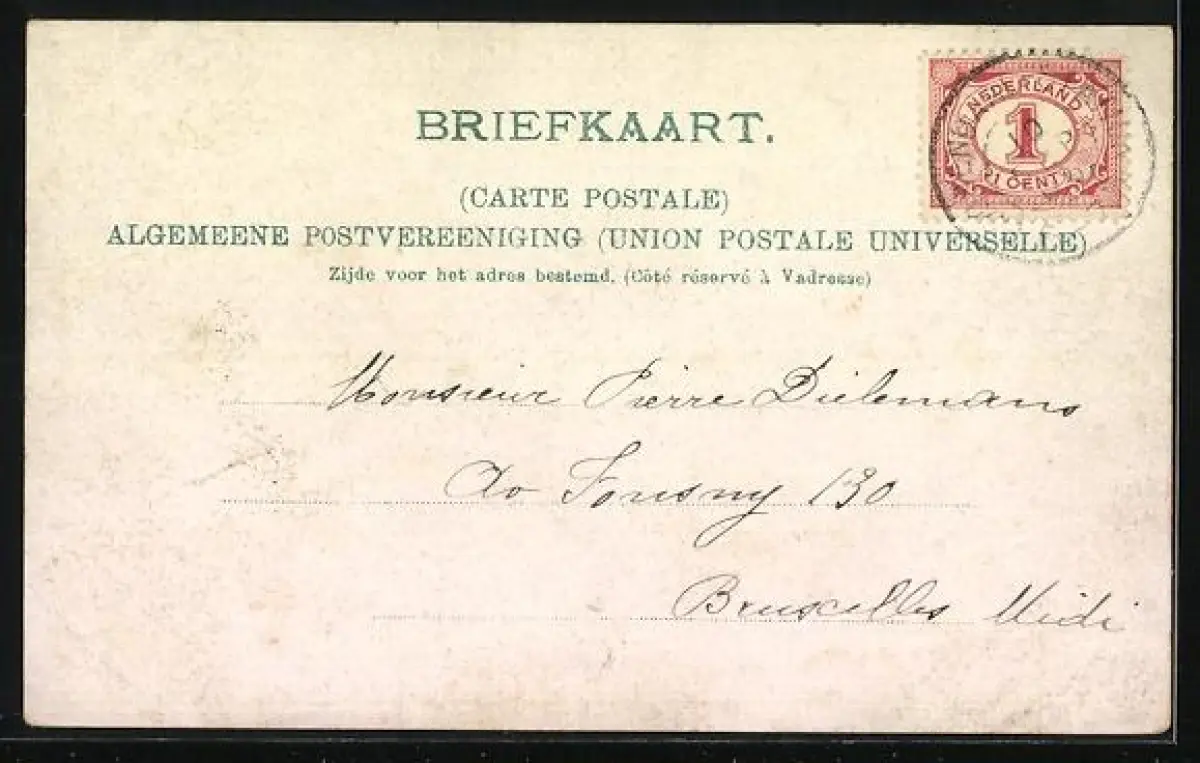 BRIEFKAART.
(CARTE POSTALE)
ALGEMEENE POSTVEREENIGING (UNION POSTALE UNIVERSELLE)
Zijde voor het adres bestemd. (Côté réservé à Vadresse)
NEDERLAND
1
1 CENT
Monsieur Pierre Dielemans
Av Fonsny 130
Bruxelles Midi